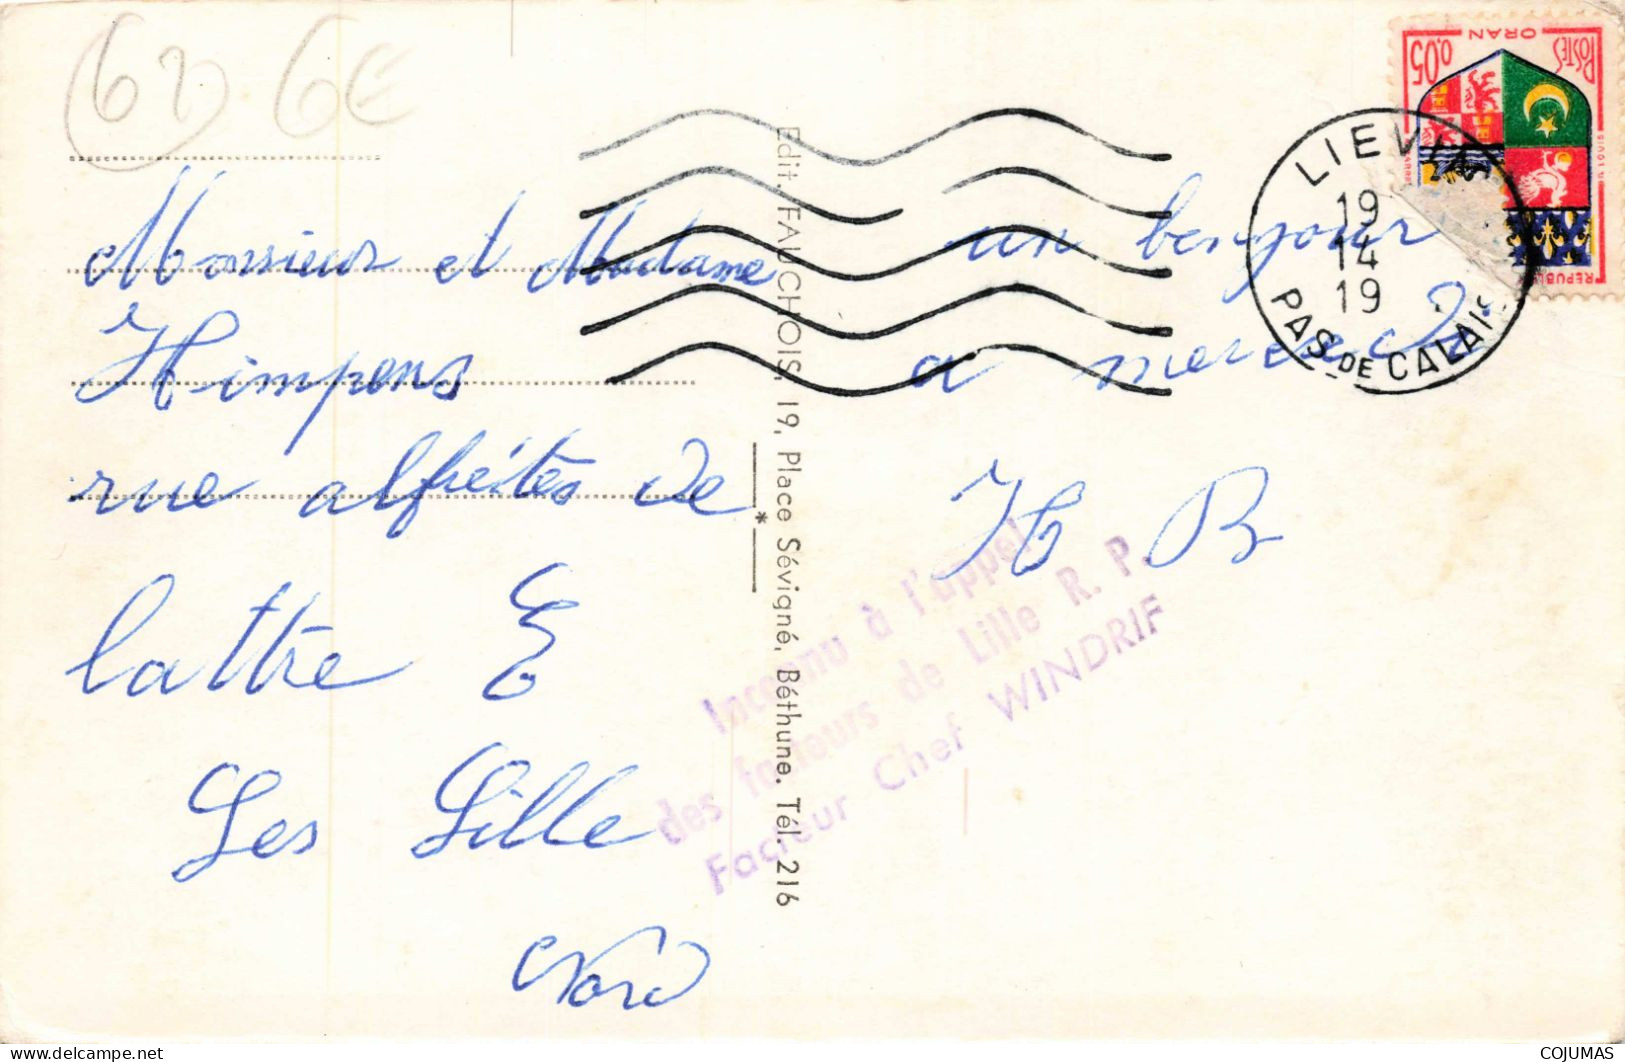 62 6E
ORAN
POSTES
0,05
LIEVIN
19
14
19
PAS DE CALAIS
Monsieur et Madame
Himpens
rue
de
lattre
Les Lille
Nord
Edit. FAUCHOIS, 19, Place Sévigné, Béthune. Tél. 216
un bonjour
a
H B
Inconnu à l'appel
des facteurs de Lille R. P.
Facteur Chef WINDRIF
COJUMAS